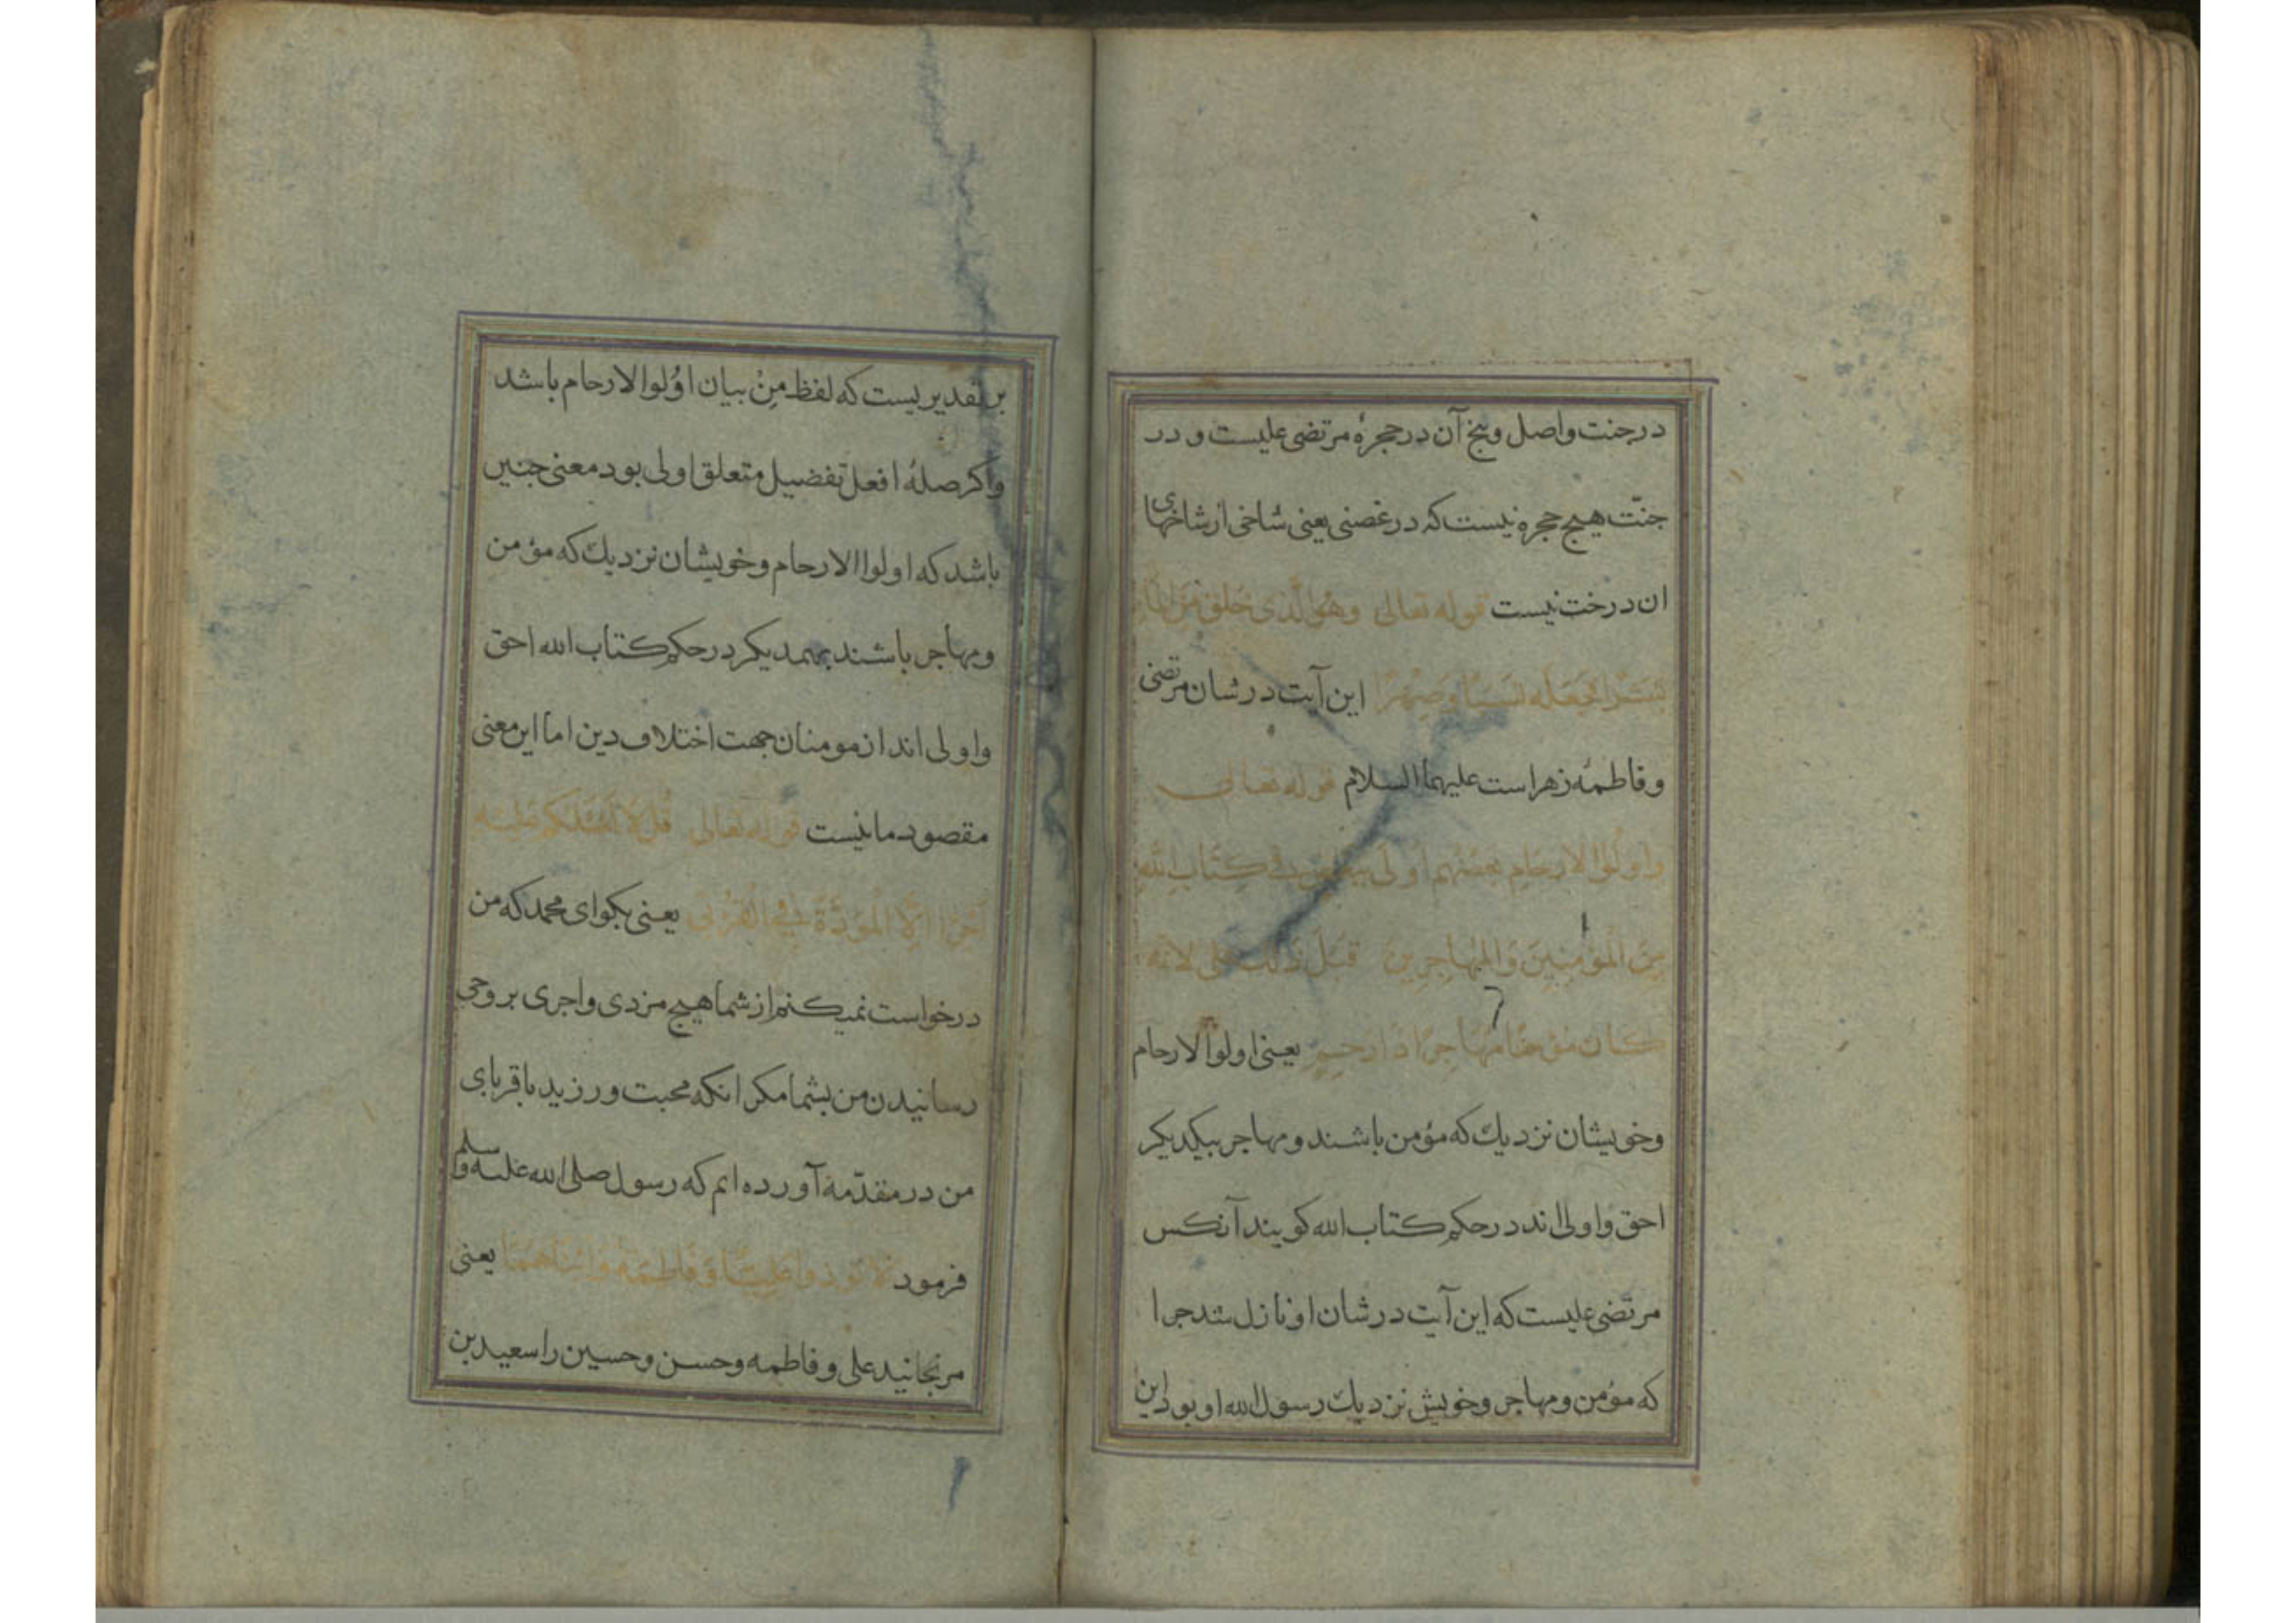 در جنت واصل و بیخ آن در حجرهٔ مرتضی علیست و در
جنّت هیچ حجره نیست که در غصنی یعنی شاخی از شاخهای
ان درخت نیست قوله تعالی وَهُوَ الَّذی خَلَقَ مِنَ الْمَاءِ
بَشَرًا فَجَعَلَهُ نَسَبًا وَصِهْرًا این آیت در شان مرتضی
و فاطمهٔ زهراست علیهما السلام قوله تعالی
وَاُولُوا الْاَرحَامِ بَعضُهُم اَولٰی بِبَعْضٍ فِی کِتَابِ اللّٰهِ
مِنَ الْمُؤمِنِینَ وَالْمُهَاجِرِینَ قیل ذلک علی لانه
کان مؤمنا مهاجرا ذا رحم یعنی اولوا الارحام
و خویشان نزدیك که مؤمن باشند و مهاجر بیکدیکر
احق و اولی اند در حکم کتاب الله کویند آنکس
مرتضی علیست که این آیت در شان او نازل شد جرا
که مؤمن و مهاجر و خویش نزدیك رسول الله او بود این
بر تقدیریست که لفظ مِنْ بیان اوُلوا الارحام باشد
واکر صلهٔ افعل تفضیل متعلق اولی بود معنی جنین
باشد که اولوا الارحام و خویشان نزدیك که مؤمن
و مهاجر باشند بهمدیکر در حکم کتاب الله احق
و اولی اند از مومنان جهت اختلاف دین اما این معنی
مقصود ما نیست قوله تعالی قُل لَا اَسْئَلُکُم عَلَیْهِ
اَجْرًا اِلَّا الْمَوَدَّةَ فِی الْقُرْبٰی یعنی بکو ای محمد که من
درخواست نمیکنم از شما هیچ مزدی و اجری بر وحی
رسانیدن من بشما مکر انکه محبت ورزید با قربای
من در مقدّمه آورده ام که رسول صلی الله علیه وسلم
فرمود لا تُوذوا عَلِیًّا وَ فَاطِمَةَ وَابْنَاهُمَا یعنی
مرنجانید علی و فاطمه و حسن و حسین را سعید بن